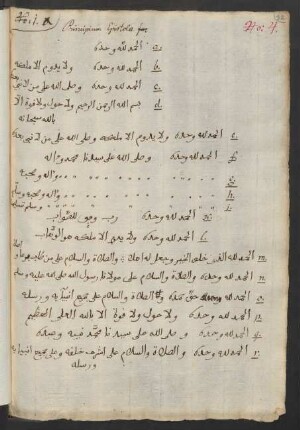 fo: 1. A
fo: 4.
Principium Epistolae
a. الحمد لله وحده
b. الحمد لله وحده ولا يدوم الا ملكه
c. الحمد لله وحده وصلى الله على من لا نبي بعده
d. بسم الله الرحمن الرحيم ولا حول ولا قوة الا
بالله سبحانه
e. الحمد لله وحده ولا يدوم الا ملكه وصلى الله على من لا نبي بعده
f. الحمد لله وحده وصلى الله على سيدنا محمد واله
g. وصحبه
h. واله وصحبه وسلم
الحمد لله وحده
l. الحمد لله وحده ولا يدوم الا ملكه
m. الحمد لله الذي خلق والصلاة والسلام على
n. الحمد لله وحده والصلاة والسلام على مولانا رسول الله صلى الله عليه وسلم
o. الحمد لله حق والصلاة والسلام على جميع انبيائه ورسله
p. الحمد لله وحده ولا حول ولا قوة الا بالله العلي العظيم
q. الحمد لله وحده وصلى الله على سيدنا محمد نبيه وعبده
r. الحمد لله وحده والصلاة والسلام على اشرف خلقه وعلى جميع انبيائه
ورسله